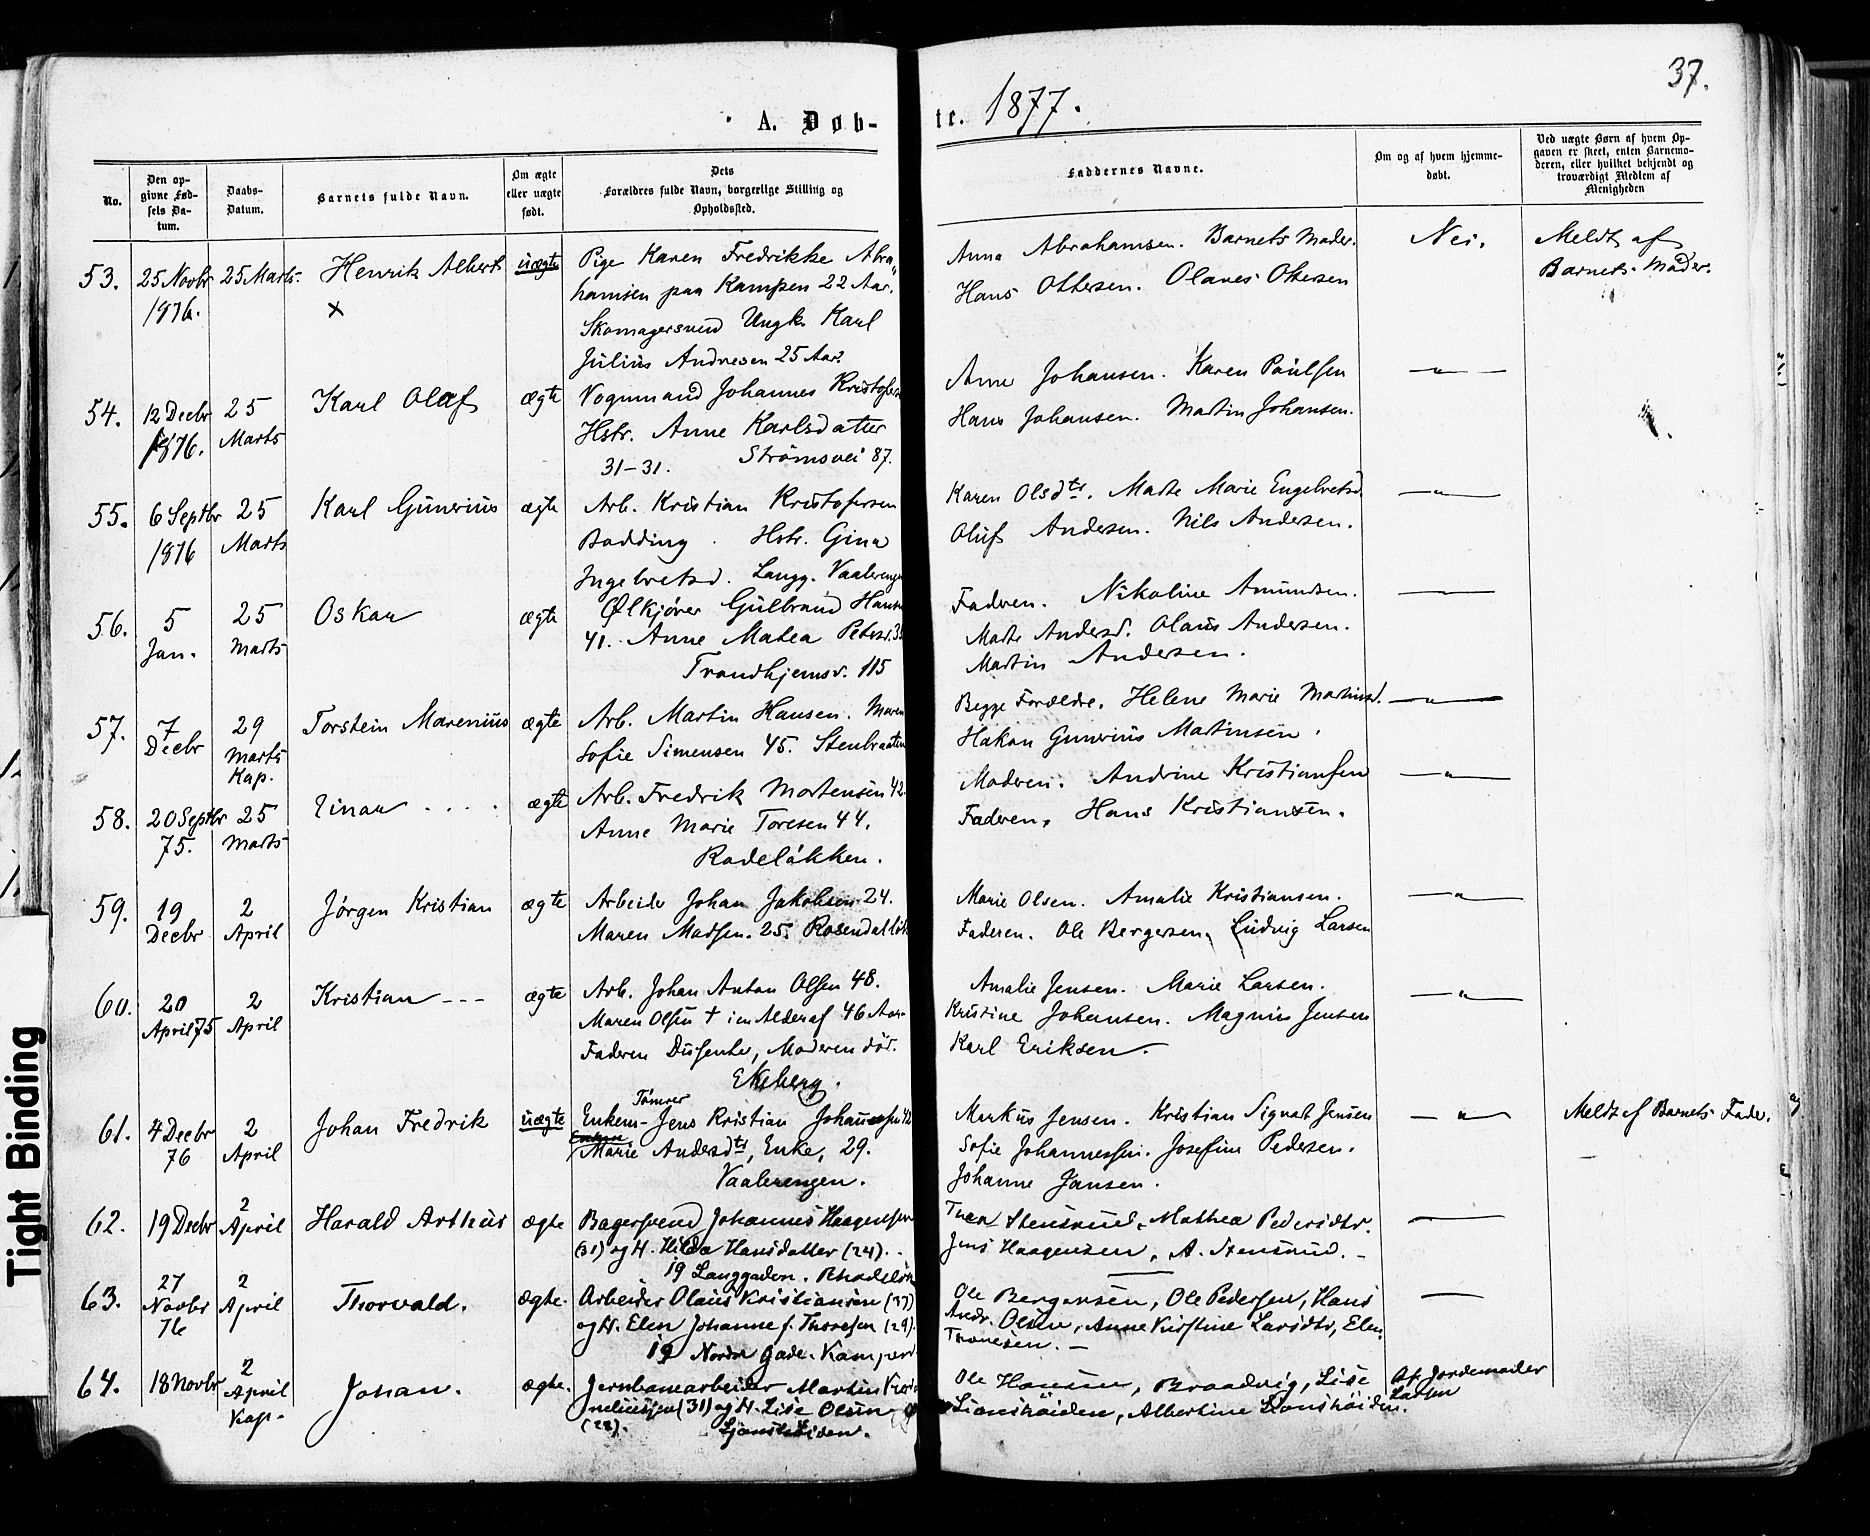 37.
A. Døb-te. 1877.
No.
Den op-
givne Fød-
sels Da-
tum.
Daabs-
Datum.
Barnets fulde Navn.
Om ægte
eller uægte
født.
Dets
Forældres fulde Navn, borgerlige Stilling og
Opholdssted.
Faddernes Navne.
Om og af hvem hjemme-
døbt.
Ved uægte Børn af hvem Op-
gaven er skeet, enten Barnemo-
deren, eller hvilket bekjendt og
troværdigt Medlem af
Menigheden
53.
25 Novbr
1876.
25 Marts.
Henrik Albert
x
uægte
Pige Karen Fredrikke Abra"
hamsen paa Kampen 22 Aar.
Skomagersvend Ungk. Karl
Julius Andresen 25 Aar.
Anna Abrahamsen. Barnets Moder.
Hans Ottersen. Olaves Ottersen
Nei.
Meldt af
Barnets Moder.
54.
12 Decbr
1876.
25
Marts
Karl Olaf
ægte
Vognmand Johannes Kristofers
Hstr. Anne Karlsdatter
31-31. Strømsvei 87.
Anne Johansen. Karen Paulsen
Hans Johansen. Martin Johansen.
— " —
55.
6 Septbr
1876
25
Marts
Karl Gunerius
ægte
Arb. Kristian Kristofersen
Bodding. Hstr. Gina
Ingebretsd. Langg. Vaalereng
Karen Olsdtr. Marte Marie Engebretsd.
Oluf Andersen. Nils Andersen.
— " —
56.
5
Jan.
25
Marts
Oskar
ægte
Ølkjører Gulbrand Hans
41. Anne Matea Peters. 3
Trondhjemsv. 115
Faderen. Nikoline Amundsen.
Marte Andersd. Olaus Andersen.
Martin Andersen.
— " —
57.
7
Decbr
29
Marts
Kap.
Torstein Marenius
ægte
Arb. Martin Hansen. Maren
Sofie Simensen 45. Stenbraaten
Begge Forældre. Helene Marie Martinsd.
Hakon Gunerius Martinsen.
— " —
58.
20 Septbr
75.
25
Marts
Einar . . . .
ægte
Arb. Fredrik Mortensen 42.
Anne Marie Toresen 44.
Rodeløkken.
Moderen. Andrine Kristiansen
Faderen. Hans Kristiansen.
— " —
59.
19
Decbr
2
April
Jörgen Kristian
ægte
Arbeider Johan Jakobsen 24.
Maren Madsen. 25. Rosendalløk
Marie Olsen. Amalie Kristiansen.
Faderen. Ole Bergersen. Ludvig Larsen
— " —
60.
20
April 75
2
April
Kristian - - -
ægte
Arb. Johan Anton Olsen 48.
Maren Olsen † i en Alder af 46 Aar.
Faderen Dissenter, Moderen död.
Ekeberg.
Amalie Jensen. Marie Larsen.
Kristine Johansen. Magnus Jensen
Karl Eriksen.
— " —
61.
4 Decbr
76
2
April
Johan Fredrik
uægte
Tömrer
Enkem- Jens Kristian Johannesen 42
Enken
Marie Andersdtr, Enke, 29.
Vaalerengen.
Markus Jensen. Kristian Sigvat Jensen
Sofie Johannessen. Josefine Pedersen.
Johanne Jansen.
— " —
Meldt af Barnets Fader.
62.
19 Decbr
2
April
Harald Arthur
ægte
Bagersvend Johannes Haagensen
(31) og H. Hilda Hansdatter (24).
19 Langgaden. Rhodeløk
Thea Stensrud, Mathea Pedersdtr.
Jens Haagensen, A. Stensrud. -
—
63.
27
Novbr
76
2
April
Thorvald.
ægte.
Arbeider Olaus Kristiansen (37)
og H. Elen Johanne f. Thoresen (29).
19 Nordre Gade. Kampen
Ole Bergersen, Ole Pedersen, Hans
Andr. Olsen, Anne Kirstine Larsdtr, Elen
Thoresen. -
—
64.
18 Novbr
2
April
Kap.
Johan.
ægte.
Jernbanearbeider Martin
(31) og H. Lise Olsen
(22). Ljanshöiden.
Ole Hansen, Braadvig, Lise
Lianshöiden, Albertine Lianshöiden.
Af Jordemoder
Larsen
Tight Binding